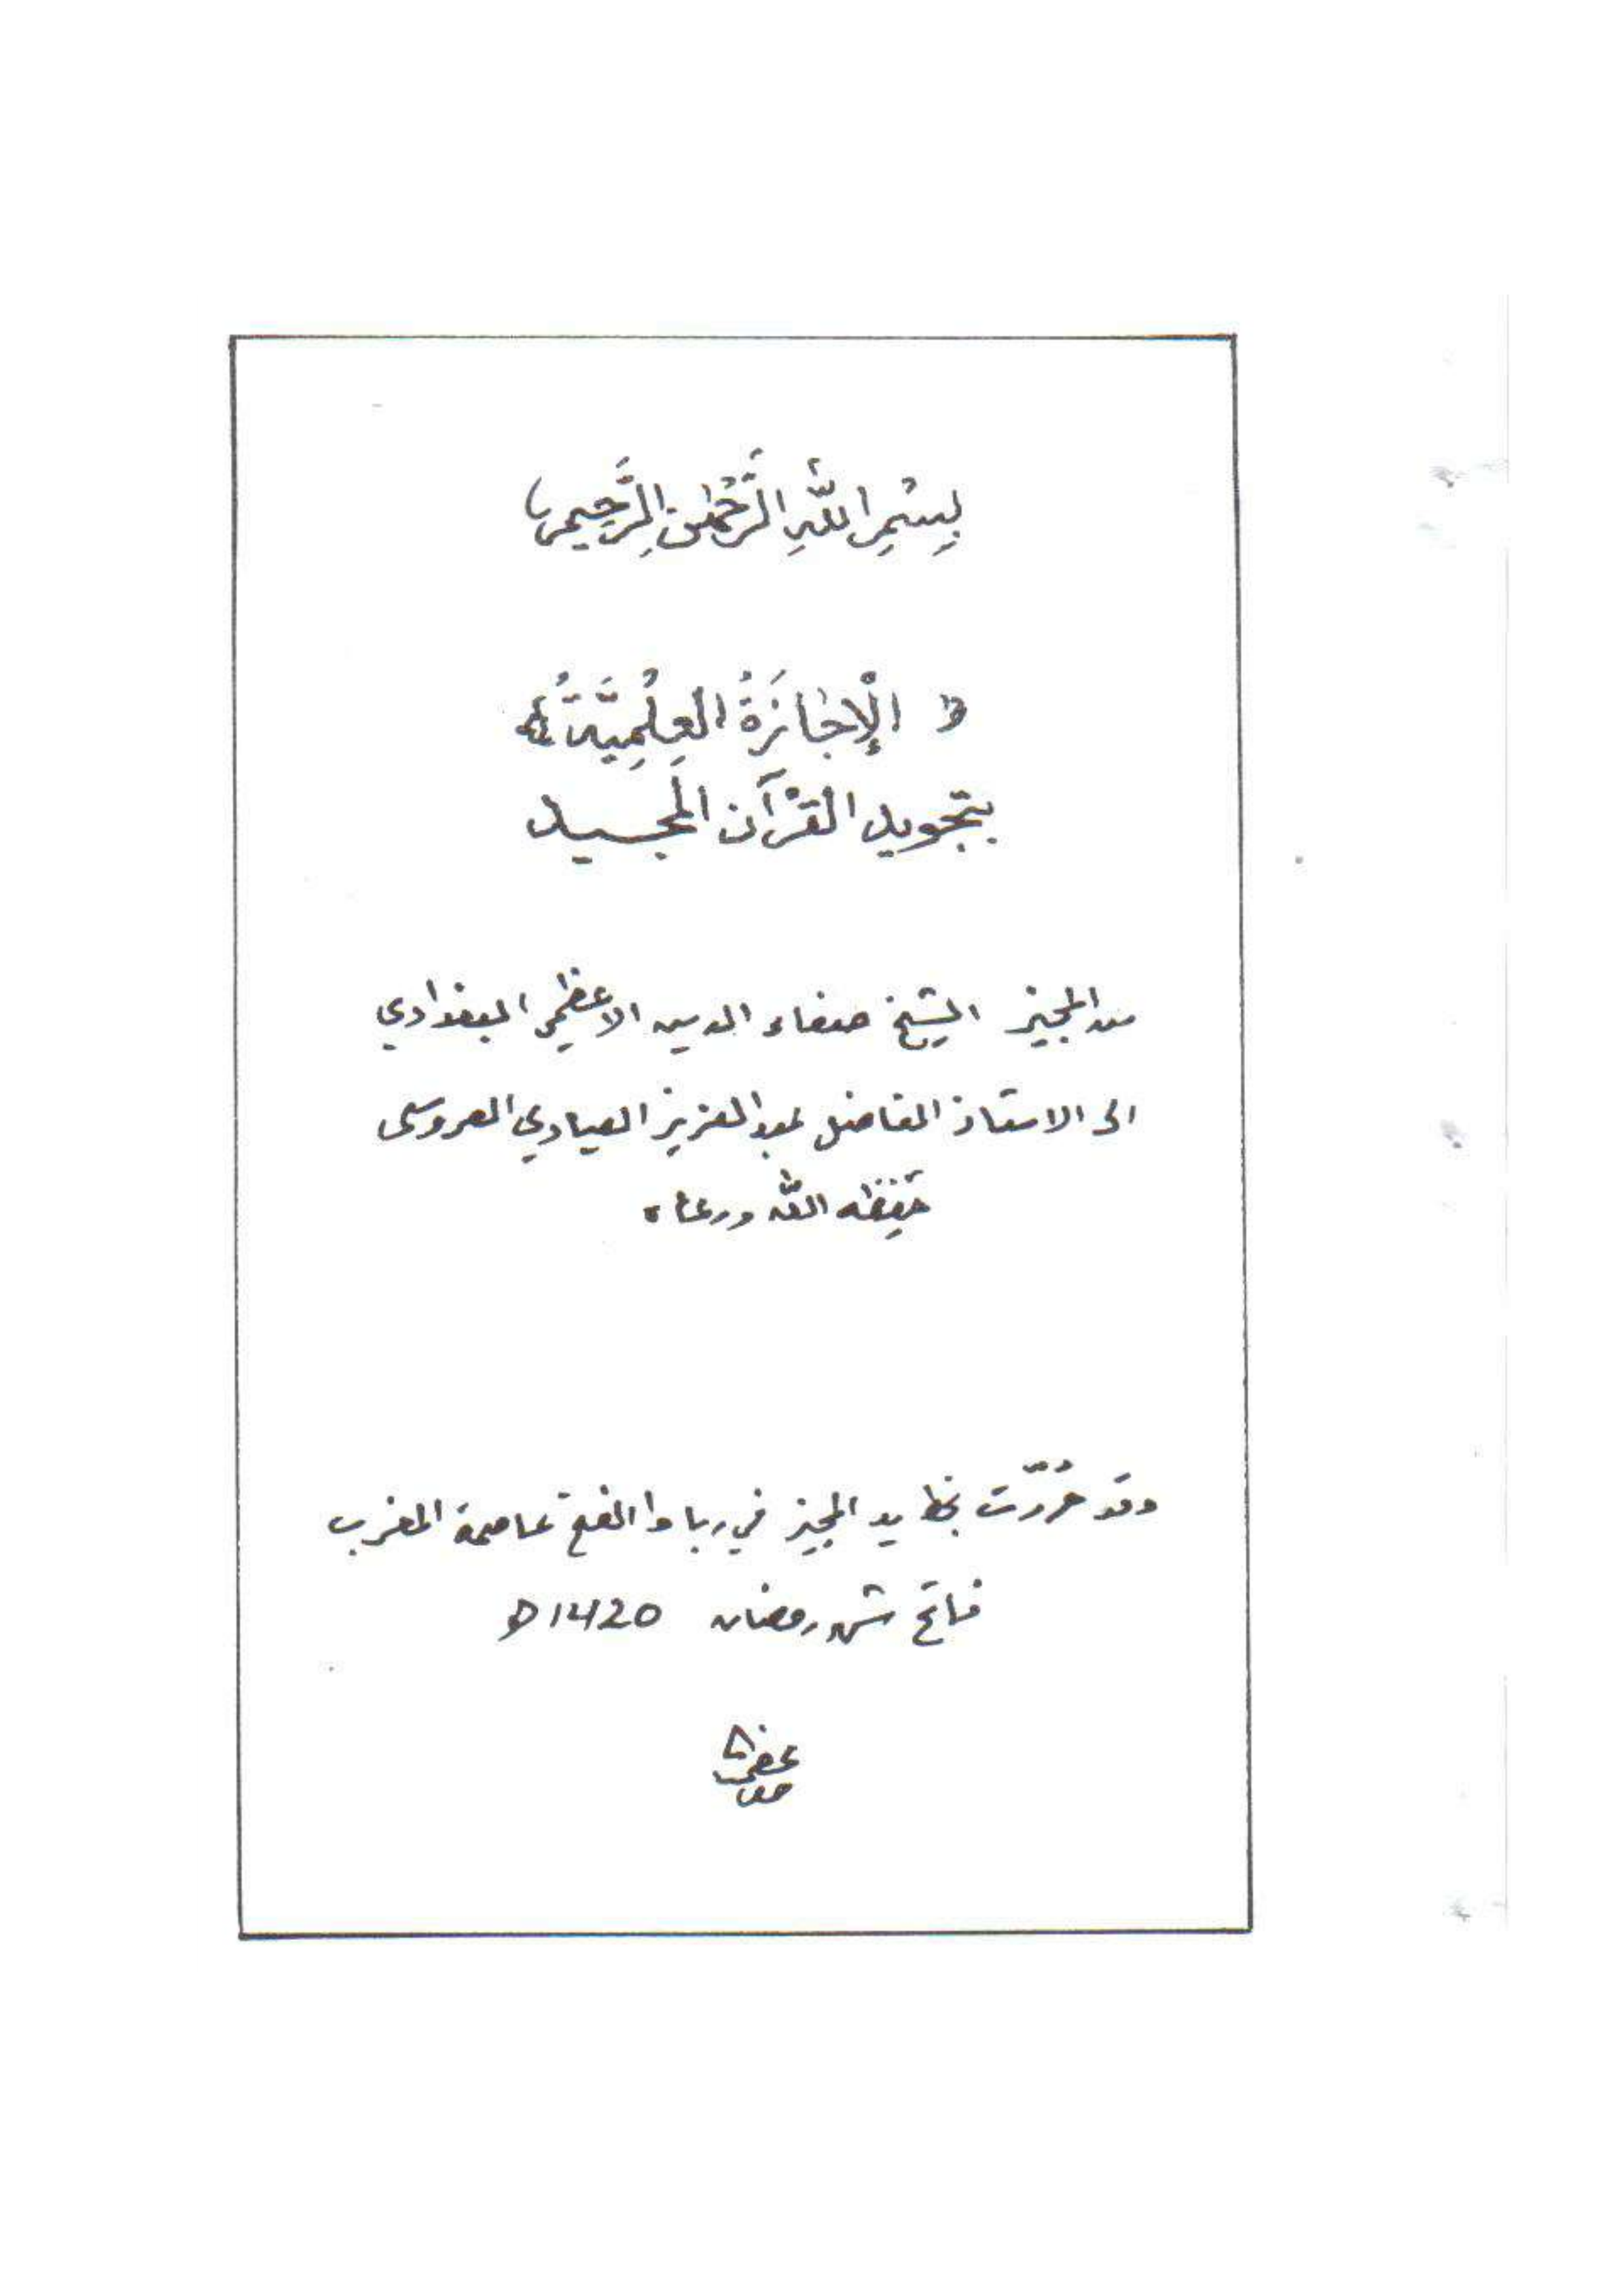 بِسْمِ اللَّهِ الرَّحْمٰنِ الرَّحِيمِ
الْإِجَازَةُ العِلْمِيَّةُ
بتجويد القرْآن المَجيد
من المجيز الشيخ صفاء الدين الاعظمي البغدادي
الى الاستاذ الفاضل عبد العزيز العيادي العروسي
حَفِظه اللّه ورعاه
وقد حُرّرَت بخط يد المجيز في رباط الفتح عاصمة المغرب
فاتح شهر رمضان 1420 ه